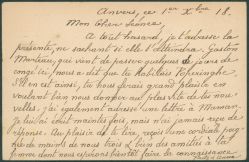 Anvers, ce 1er Xbre 18.
Mon Cher Léonce,
A tout hasard, je t'adresse la
présente, ne sachant si elle t'atteindra. Gaston
Morteau, qui vient de passer quelques jours de
congé ici, nous a dit que tu habitais Poperinghe.
S'il en est ainsi, tu nous ferais grand plaisir en
voulant bien nous donner au plus vite de tes nou-
velles. J'ai également adressé une lettre à Maman.
Je lui ai écrit maintes fois, mais n'ai jamais reçu de
réponse. Au plaisir de te lire, reçois une cordiale poig-
née de mains de nous trois et bien des amitiés à ta
femme dont nous espérons bientôt faire la connaissance